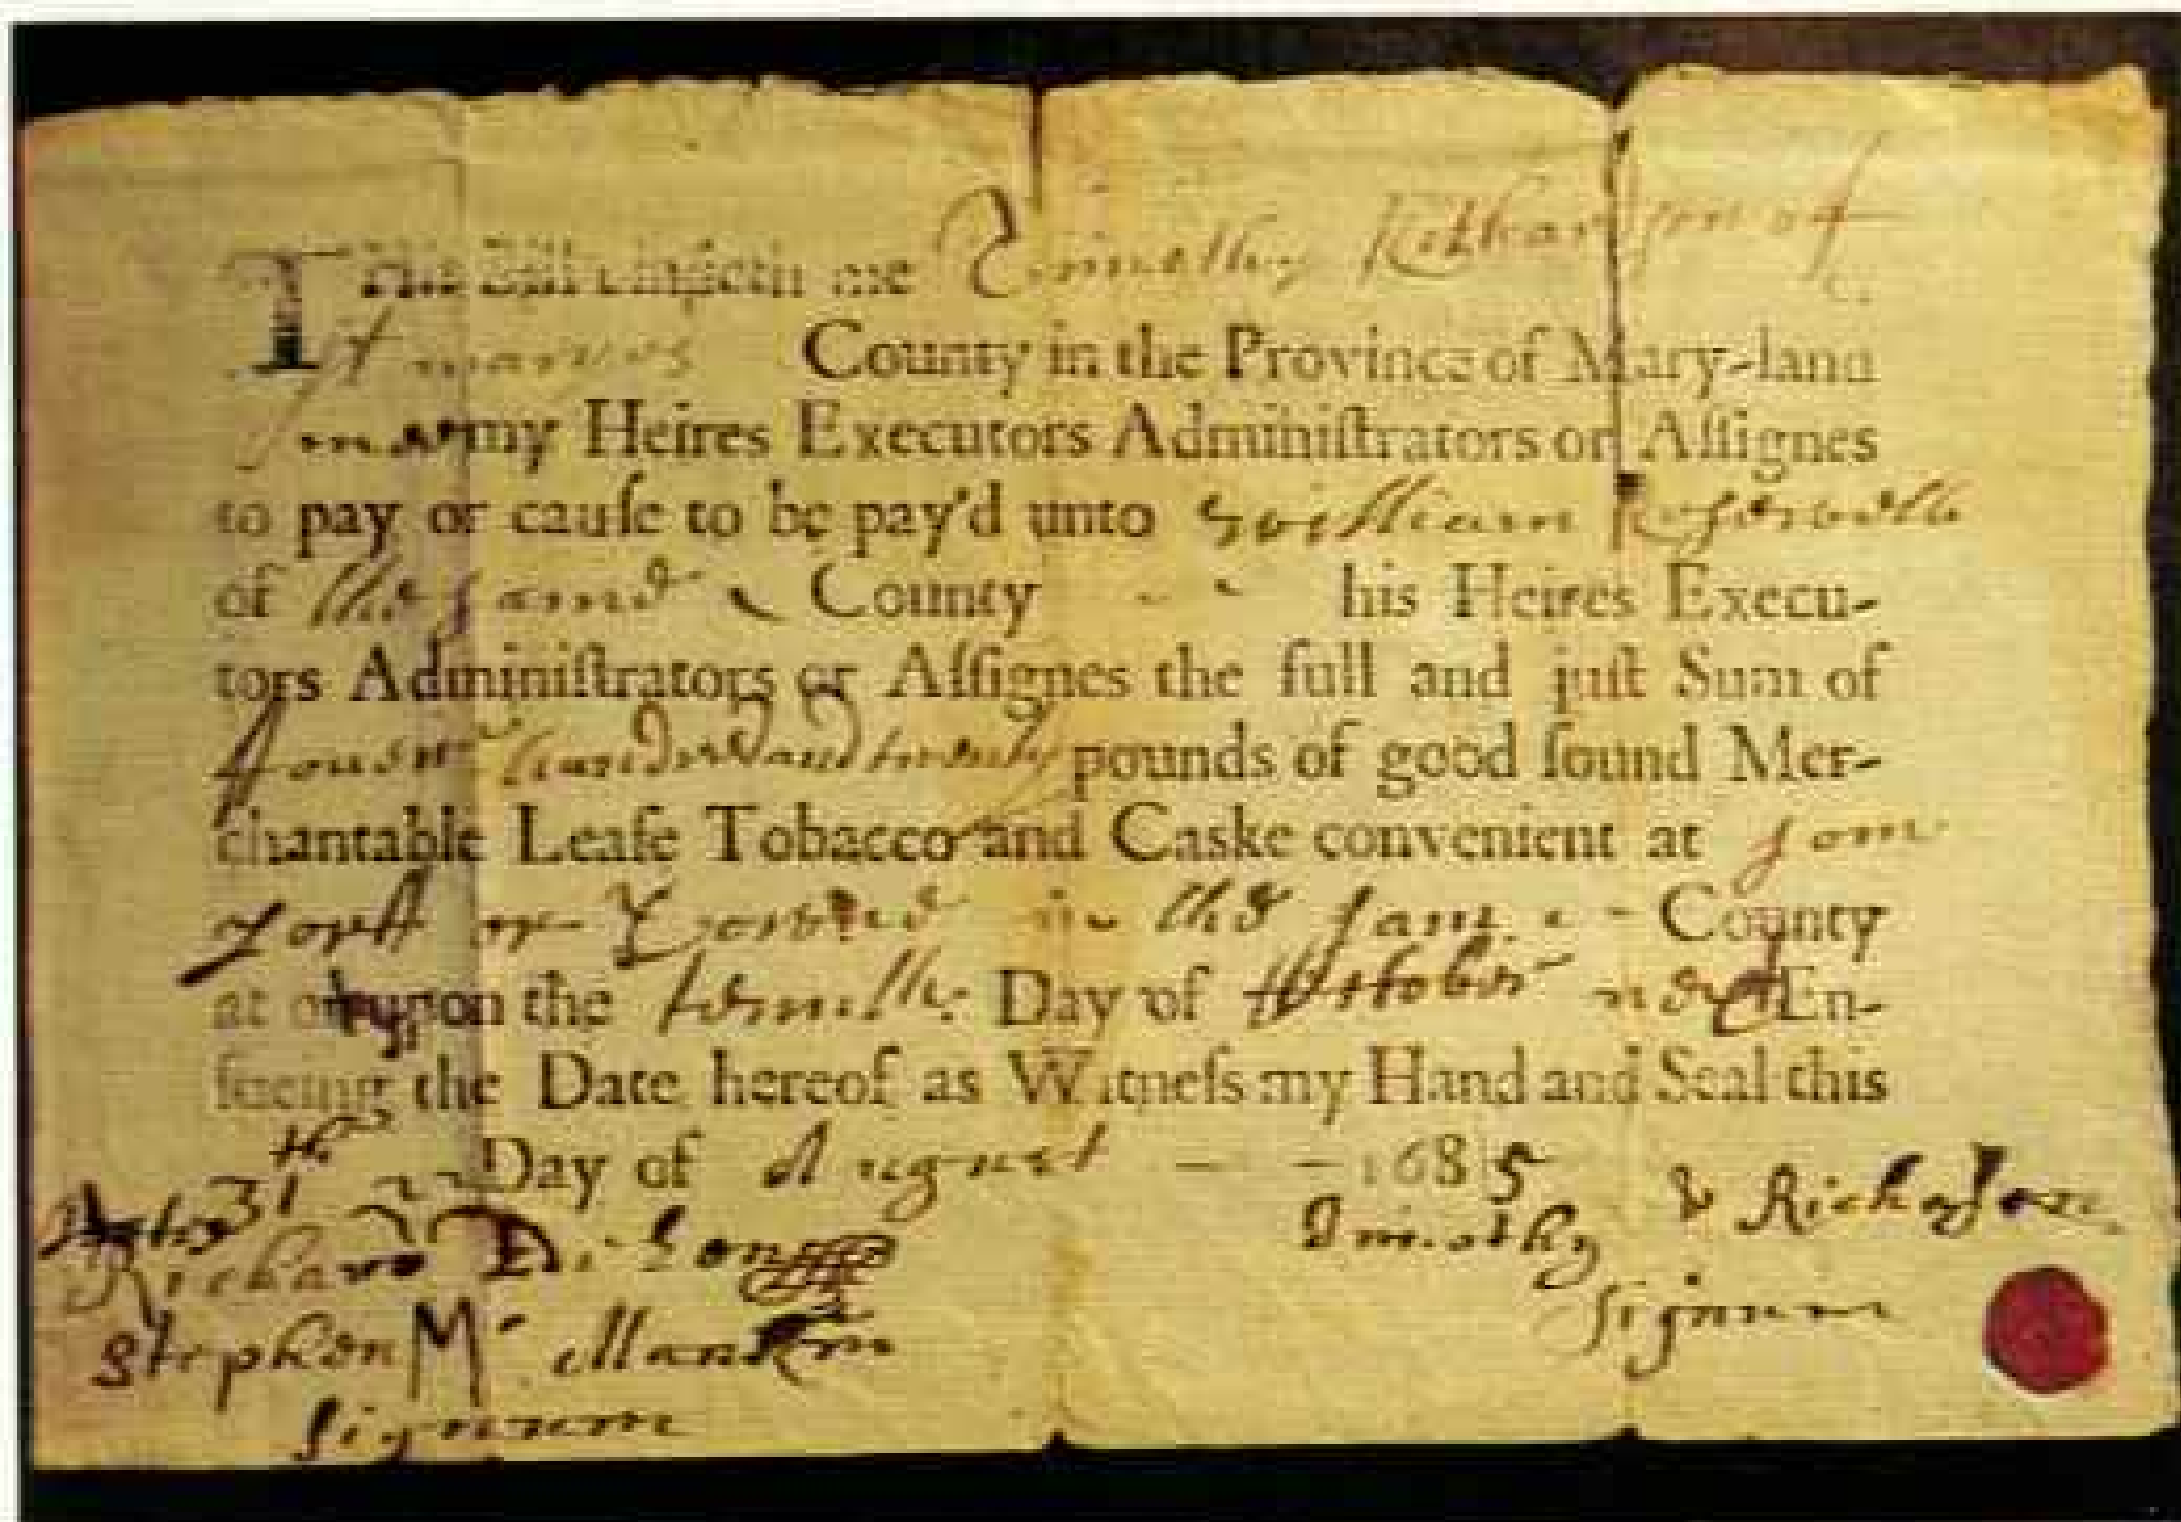 This Bill bindeth me Timothy Richardson of
St maryes County in the Province of Mary-land
me or my Heires Executors Adminiſtrators or Aſſignes
to pay or cauſe to be pay'd unto william
of the ſame County his Heires Execu-
tors Adminiſtrators or Aſſignes the full and juſt Sum of
fouer hundred and twenty pounds of good ſound Mer-
chantable Leafe Tobacco and Caske convenient at ſom
or in the ſame County
at or upon the tennth Day of October next En-
ſueing the Date hereof as Witneſs my Hand and Seal this
31th Day of August 1685
Timothy Richaſon
Richard
Signum
Stephen M Mankin
Signum